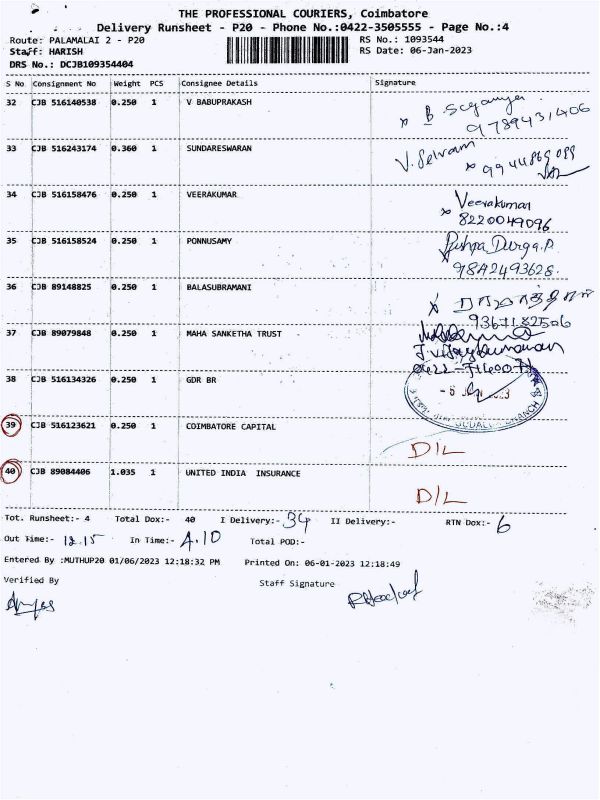 THE PROFESSIONAL COURIERS, Coimbatore
Delivery Runsheet - P20 - Phone No.:0422-3505555 - Page No.:4
Route: PALAMALAI 2 - P20 RS No.: 1093544
Staff: HARISH RS Date: 06-Jan-2023
DRS No.: DCJB109354404
S No Consignment No Weight PCS Consignee Details Signature
32 CJB 516140538 0.250 1 V BABUPRAKASH
9789431406
33 CJB 516243174 0.360 1 SUNDARESWARAN V. Selvam
34 CJB 516158476 0.250 1 VEERAKUMAR Veerakumar
8220049096
35 CJB 516158524 0.250 1 PONNUSAMY Pushpa Durga.P.
9842493628
36 CJB 89148825 0.250 1 BALASUBRAMANI
9367182506
37 CJB 89079848 0.250 1 MAHA SANKETHA TRUST
38 CJB 516134326 0.250 1 GDR BR
39 CJB 516123621 0.250 1 COIMBATORE CAPITAL D/L
40 CJB 89084406 1.035 1 UNITED INDIA INSURANCE D/L
Tot. Runsheet:- 4 Total Dox:- 40 I Delivery:- 34 II Delivery:- RTN Dox:- 6
Out Time:- 12.15 In Time:- 4.10 Total POD:-
Entered By :MUTHUP20 01/06/2023 12:18:32 PM Printed On: 06-01-2023 12:18:49
Verified By Staff Signature